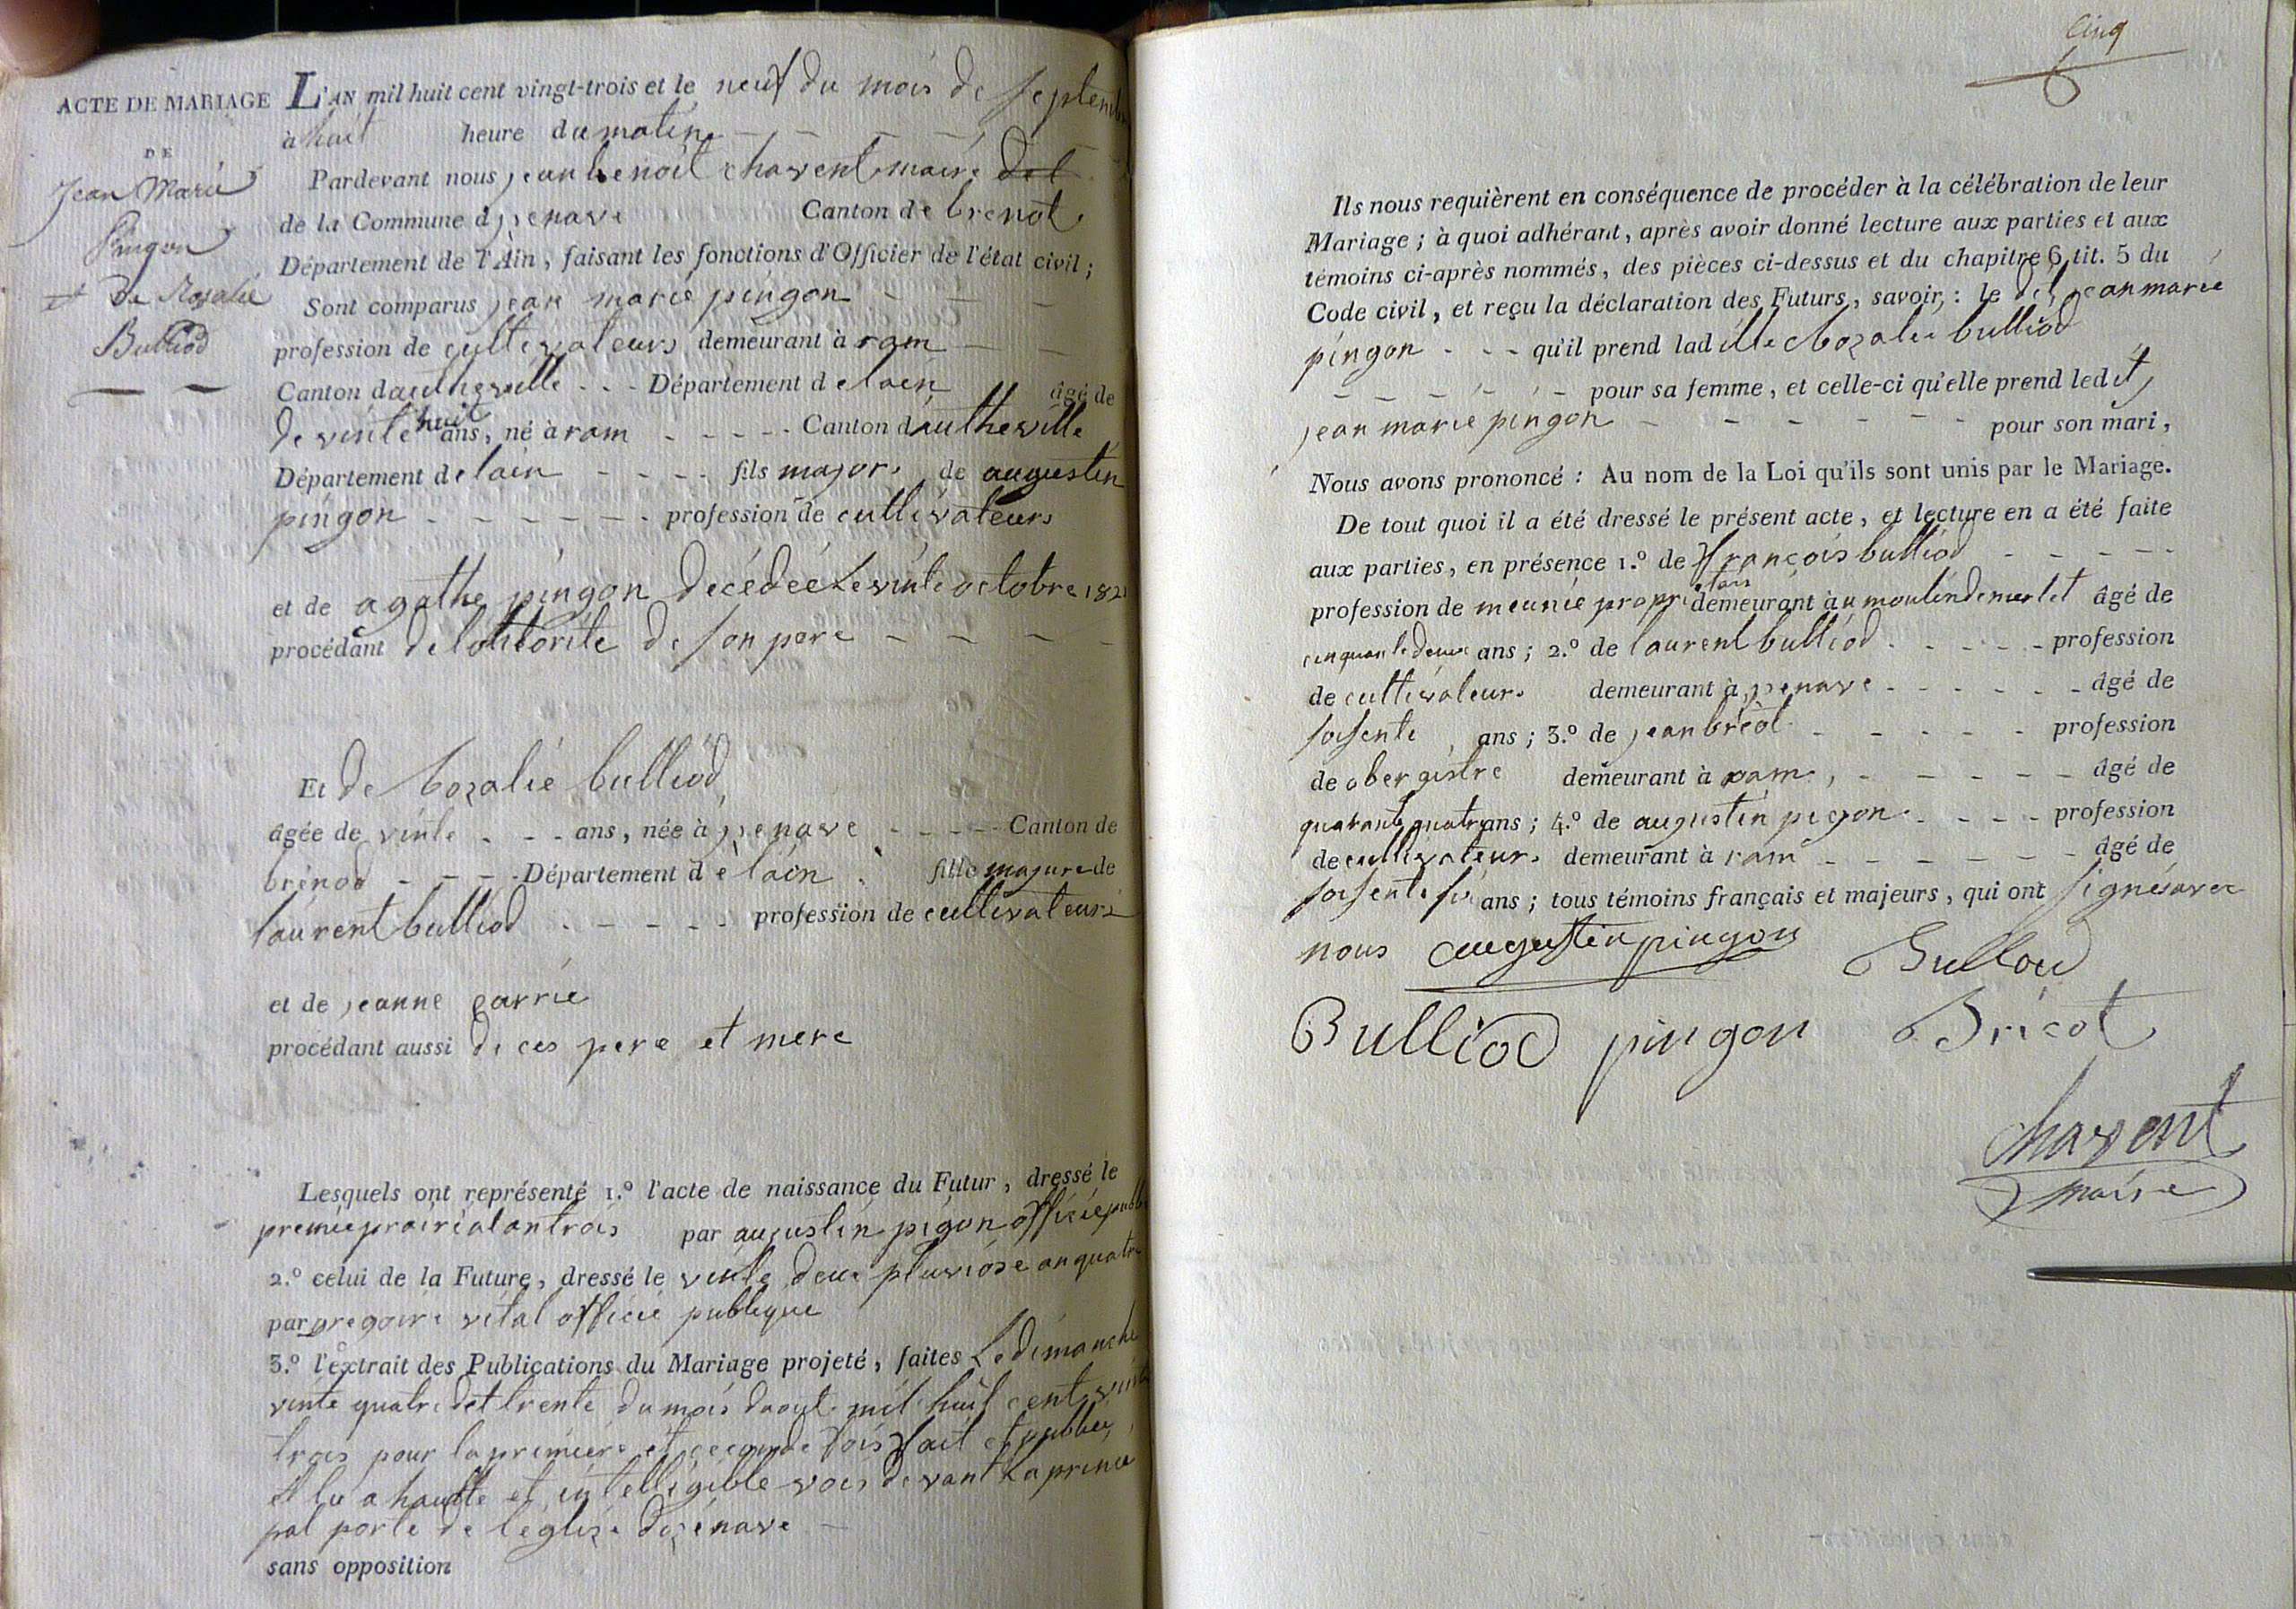 ACTE DE MARIAGE
DE
Jean Marie
Pingon
et De Rosalie
Bulliod
L'AN mil huit cent vingt-trois et le neuf du mois de septembre
à huit heure du matin
Pardevant nous jean benoit chavent maire
de la Commune d izenave Canton de brenot
Département de l'Ain, faisant les fonctions d'Officier de l'état civil;
Sont comparus jean marie pingon
profession de cultivateurs demeurant à ram
Canton dautheville - - - Département de lain âgé de
de vinte huit ans, né à ram - - - - - Canton dautheville
Département de lain - - - - fils majors de augustin
pingon - - - - - - - profession de cultivateurs
et de agathe pingon decédée Le vinte octobre 1821
procédant de lotitorite de son pere - - - -
Et de Rozalie bulliod
âgée de vinte - - - ans, née à izenave - - - - - Canton de
brenod - - - - Département de lain fille majure de
laurent bulliod - - - - - profession de cultivateurs
et de jeanne carrie
procédant aussi de ces pere et mere
Lesquels ont représenté 1.º l'acte de naissance du Futur, dressé le
premie prairial an trois par augustin pigon officie publi
2.º celui de la Future, dressé le vinte deux pluviose an quatre
par gregoire vital officie publique
3.º l'extrait des Publications du Mariage projeté, faites Le dimanche
vinte quatre det trente du mois daout mil huit cent vint
trois pour la premiere et ceconde fois fait et publiez
et lu a hautte et intelligible vois devant La princi
pal porte de leglize dizenave -
sans opposition
Cinq
Ils nous requièrent en conséquence de procéder à la célébration de leur
Mariage; à quoi adhérant, après avoir donné lecture aux parties et aux
témoins ci-après nommés, des pièces ci-dessus et du chapitre 6, tit. 5 du
Code civil, et reçu la déclaration des Futurs, savoir,: le dit jean marie
pingon - - - qu'il prend ladite Rozalie bulliod
- - - - - - pour sa femme, et celle-ci qu'elle prend ledit
jean marie pingon - - - - - - pour son mari,
Nous avons prononcé: Au nom de la Loi qu'ils sont unis par le Mariage.
De tout quoi il a été dressé le présent acte, et lecture en a été faite
aux parties, en présence 1.º de françois bulliod - - - - -
profession de meunie proprietais demeurant à u moulin de merlet âgé de
cinquante deux ans; 2.º de laurent bulliod - - - - - profession
de cultivateurs demeurant à izenave - - - - - - âgé de
soisente ans; 3.º de jean bricot - - - - - profession
de obergistre demeurant à ram, - - - - - âgé de
quarante quatre ans; 4.º de augustin pigon - - - - profession
de cultivateurs demeurant à ram - - - - - - âgé de
soisente six ans; tous témoins français et majeurs, qui ont signés avec
nous augustin pingon Bulliod
Bulliod pingon Bricot
Chavent
maire